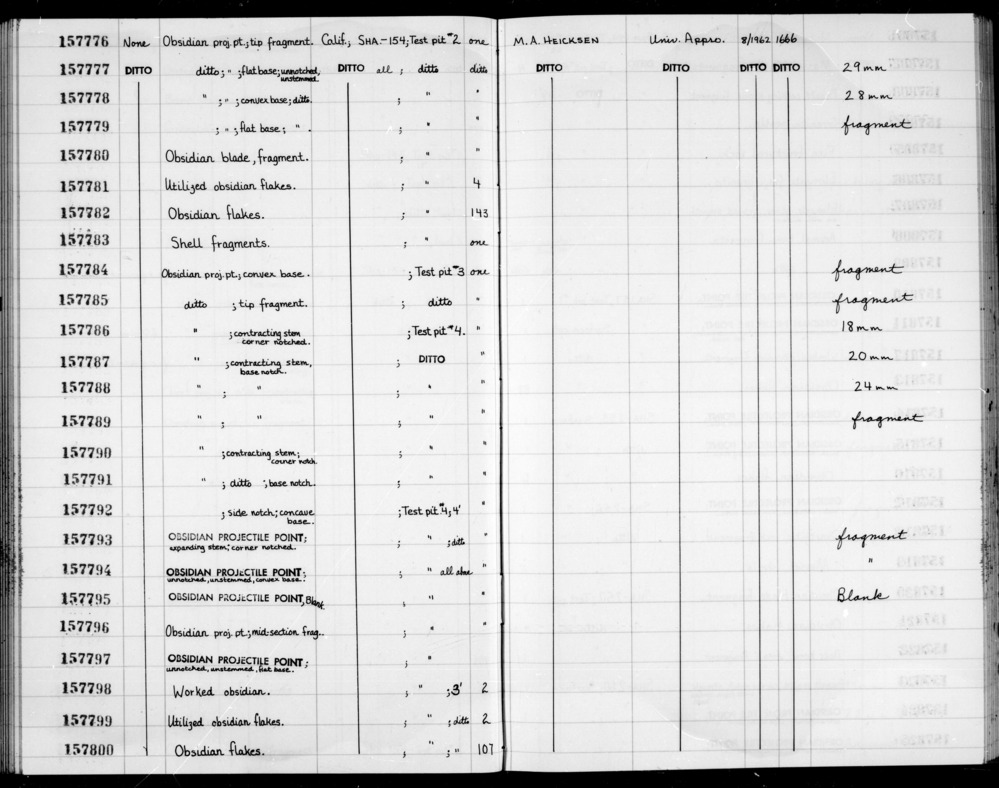 157776 None Obsidian proj. pt.; tip fragment. Calif., SHA.-154; Test pit #2 one M. A. HEICKSEN Univ. Appro. 8/1962 1666
157777 DITTO ditto; " ; flat base; unnotched, unstemmed. DITTO all ; ditto ditto DITTO DITTO DITTO DITTO 29mm
157778 " ; " ; convex base; ditto. ; " " 28mm
157779 ; " ; flat base; " . ; " " fragment
157780 Obsidian blade, fragment. ; " "
157781 Utilized obsidian flakes. ; " 4
157782 Obsidian flakes. ; " 143
157783 Shell fragments. ; " one
157784 Obsidian proj. pt.; convex base.. ; Test pit #3 one fragment
157785 ditto ; tip fragment. ; ditto " fragment
157786 " ; contracting stem corner notched. ; Test pit #4. " 18mm
157787 " ; contracting stem, base notch. ; DITTO " 20mm
157788 " ; " ; " " 24mm
157789 " ; " ; " " fragment
157790 " ; contracting stem; corner notch. ; " "
157791 " ; ditto ; base notch. ; " "
157792 ; side notch; concave base.. ; Test pit #4; 4' "
157793 OBSIDIAN PROJECTILE POINT; expanding stem; corner notched. ; " ; ditto " fragment
157794 OBSIDIAN PROJECTILE POINT; unnotched, unstemmed, convex base.. ; " all above " "
157795 OBSIDIAN PROJECTILE POINT, Blank , " " Blank
157796 Obsidian proj. pt.; mid-section frag.. ; " "
157797 OBSIDIAN PROJECTILE POINT; unnotched, unstemmed, flat base. ; " "
157798 Worked obsidian. ; " ; 3' 2
157799 Utilized obsidian flakes. ; " ; ditto 2
157800 Obsidian flakes. ; " ; " 107